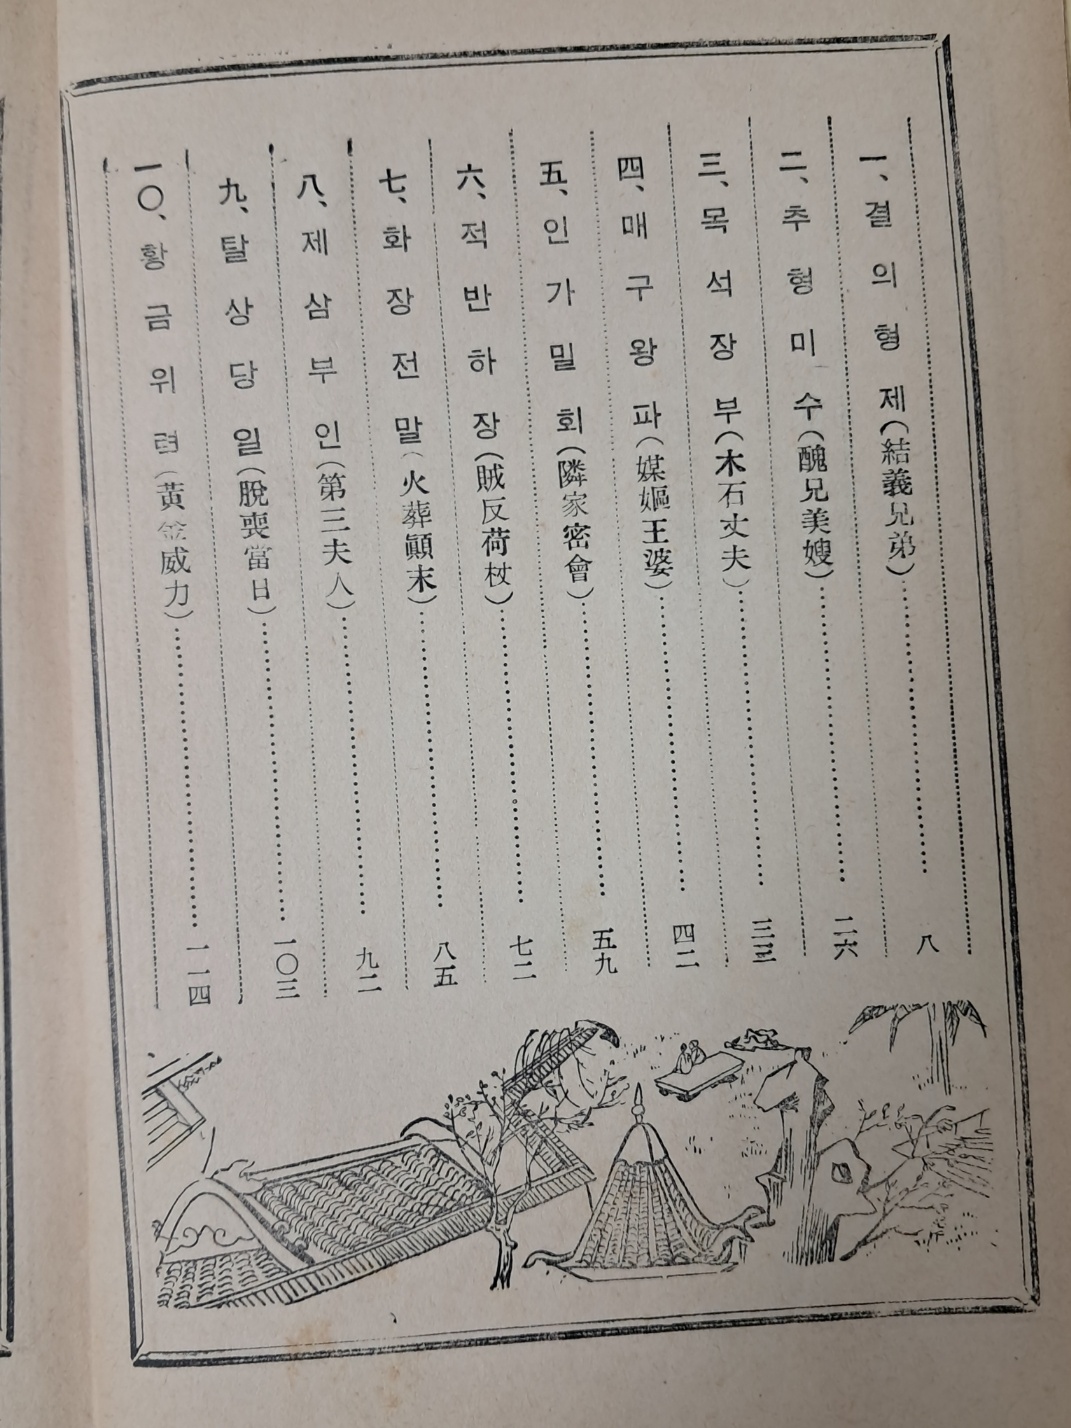 一、결의형제(結義兄弟)……八
二、추형미수(醜兄美嫂)……二六
三、목석장부(木石丈夫)……三三
四、매구왕파(媒嫗王婆)……四二
五、인가밀회(隣家密會)……五九
六、적반하장(賊反荷杖)……七二
七、화장전말(火葬顚末)……八五
八、제삼부인(第三夫人)……九二
九、탈상당일(脫喪當日)……一〇三
一〇、황금위력(黃金威力)……一一四